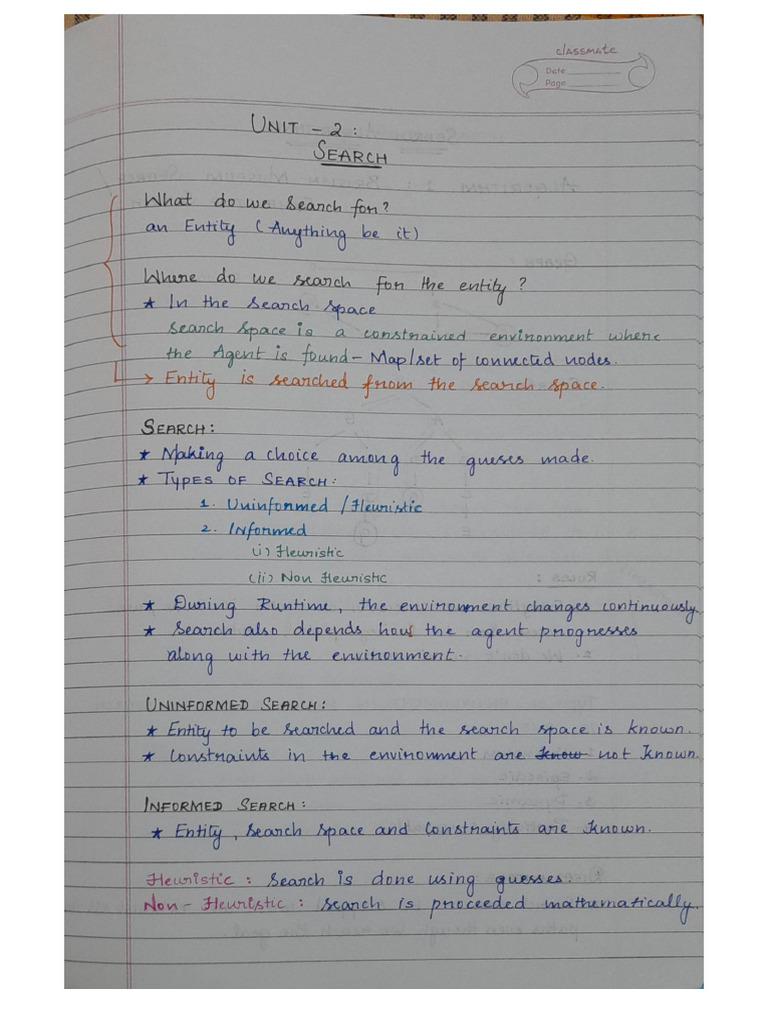 classmate
Date
Page
UNIT - 2 :
SEARCH
What do we search for?
an Entity (Anything be it)
Where do we search for the entity ?
★ In the search space
search space is a constrained environment where
the Agent is found - Map/set of connected nodes.
→ Entity is searched from the search space.
SEARCH :
★ Making a choice among the gueses made.
★ TYPES OF SEARCH :
1. Uninformed / Heuristic
2. Informed
(i) Heuristic
(ii) Non Heuristic
★ During Runtime, the environment changes continuously.
★ Search also depends how the agent progresses
along with the environment.
UNINFORMED SEARCH :
★ Entity to be searched and the search space is known.
★ Constraints in the environment are know not known.
INFORMED SEARCH :
★ Entity, search space and constraints are known.
Heuristic : Search is done using guesses.
Non - Heuristic : search is proceeded mathematically.